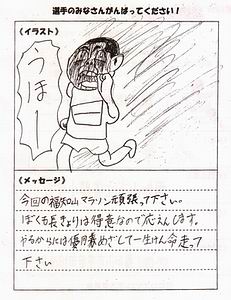 選手のみなさんがんばってください！
〈イラスト〉
うほー
〈メッセージ〉
今回の福知山マラソン頑張って下さい。
ぼくも長きょりは得意なので応えんします。
やるからには優勝めざして一生けん命走って
下さい